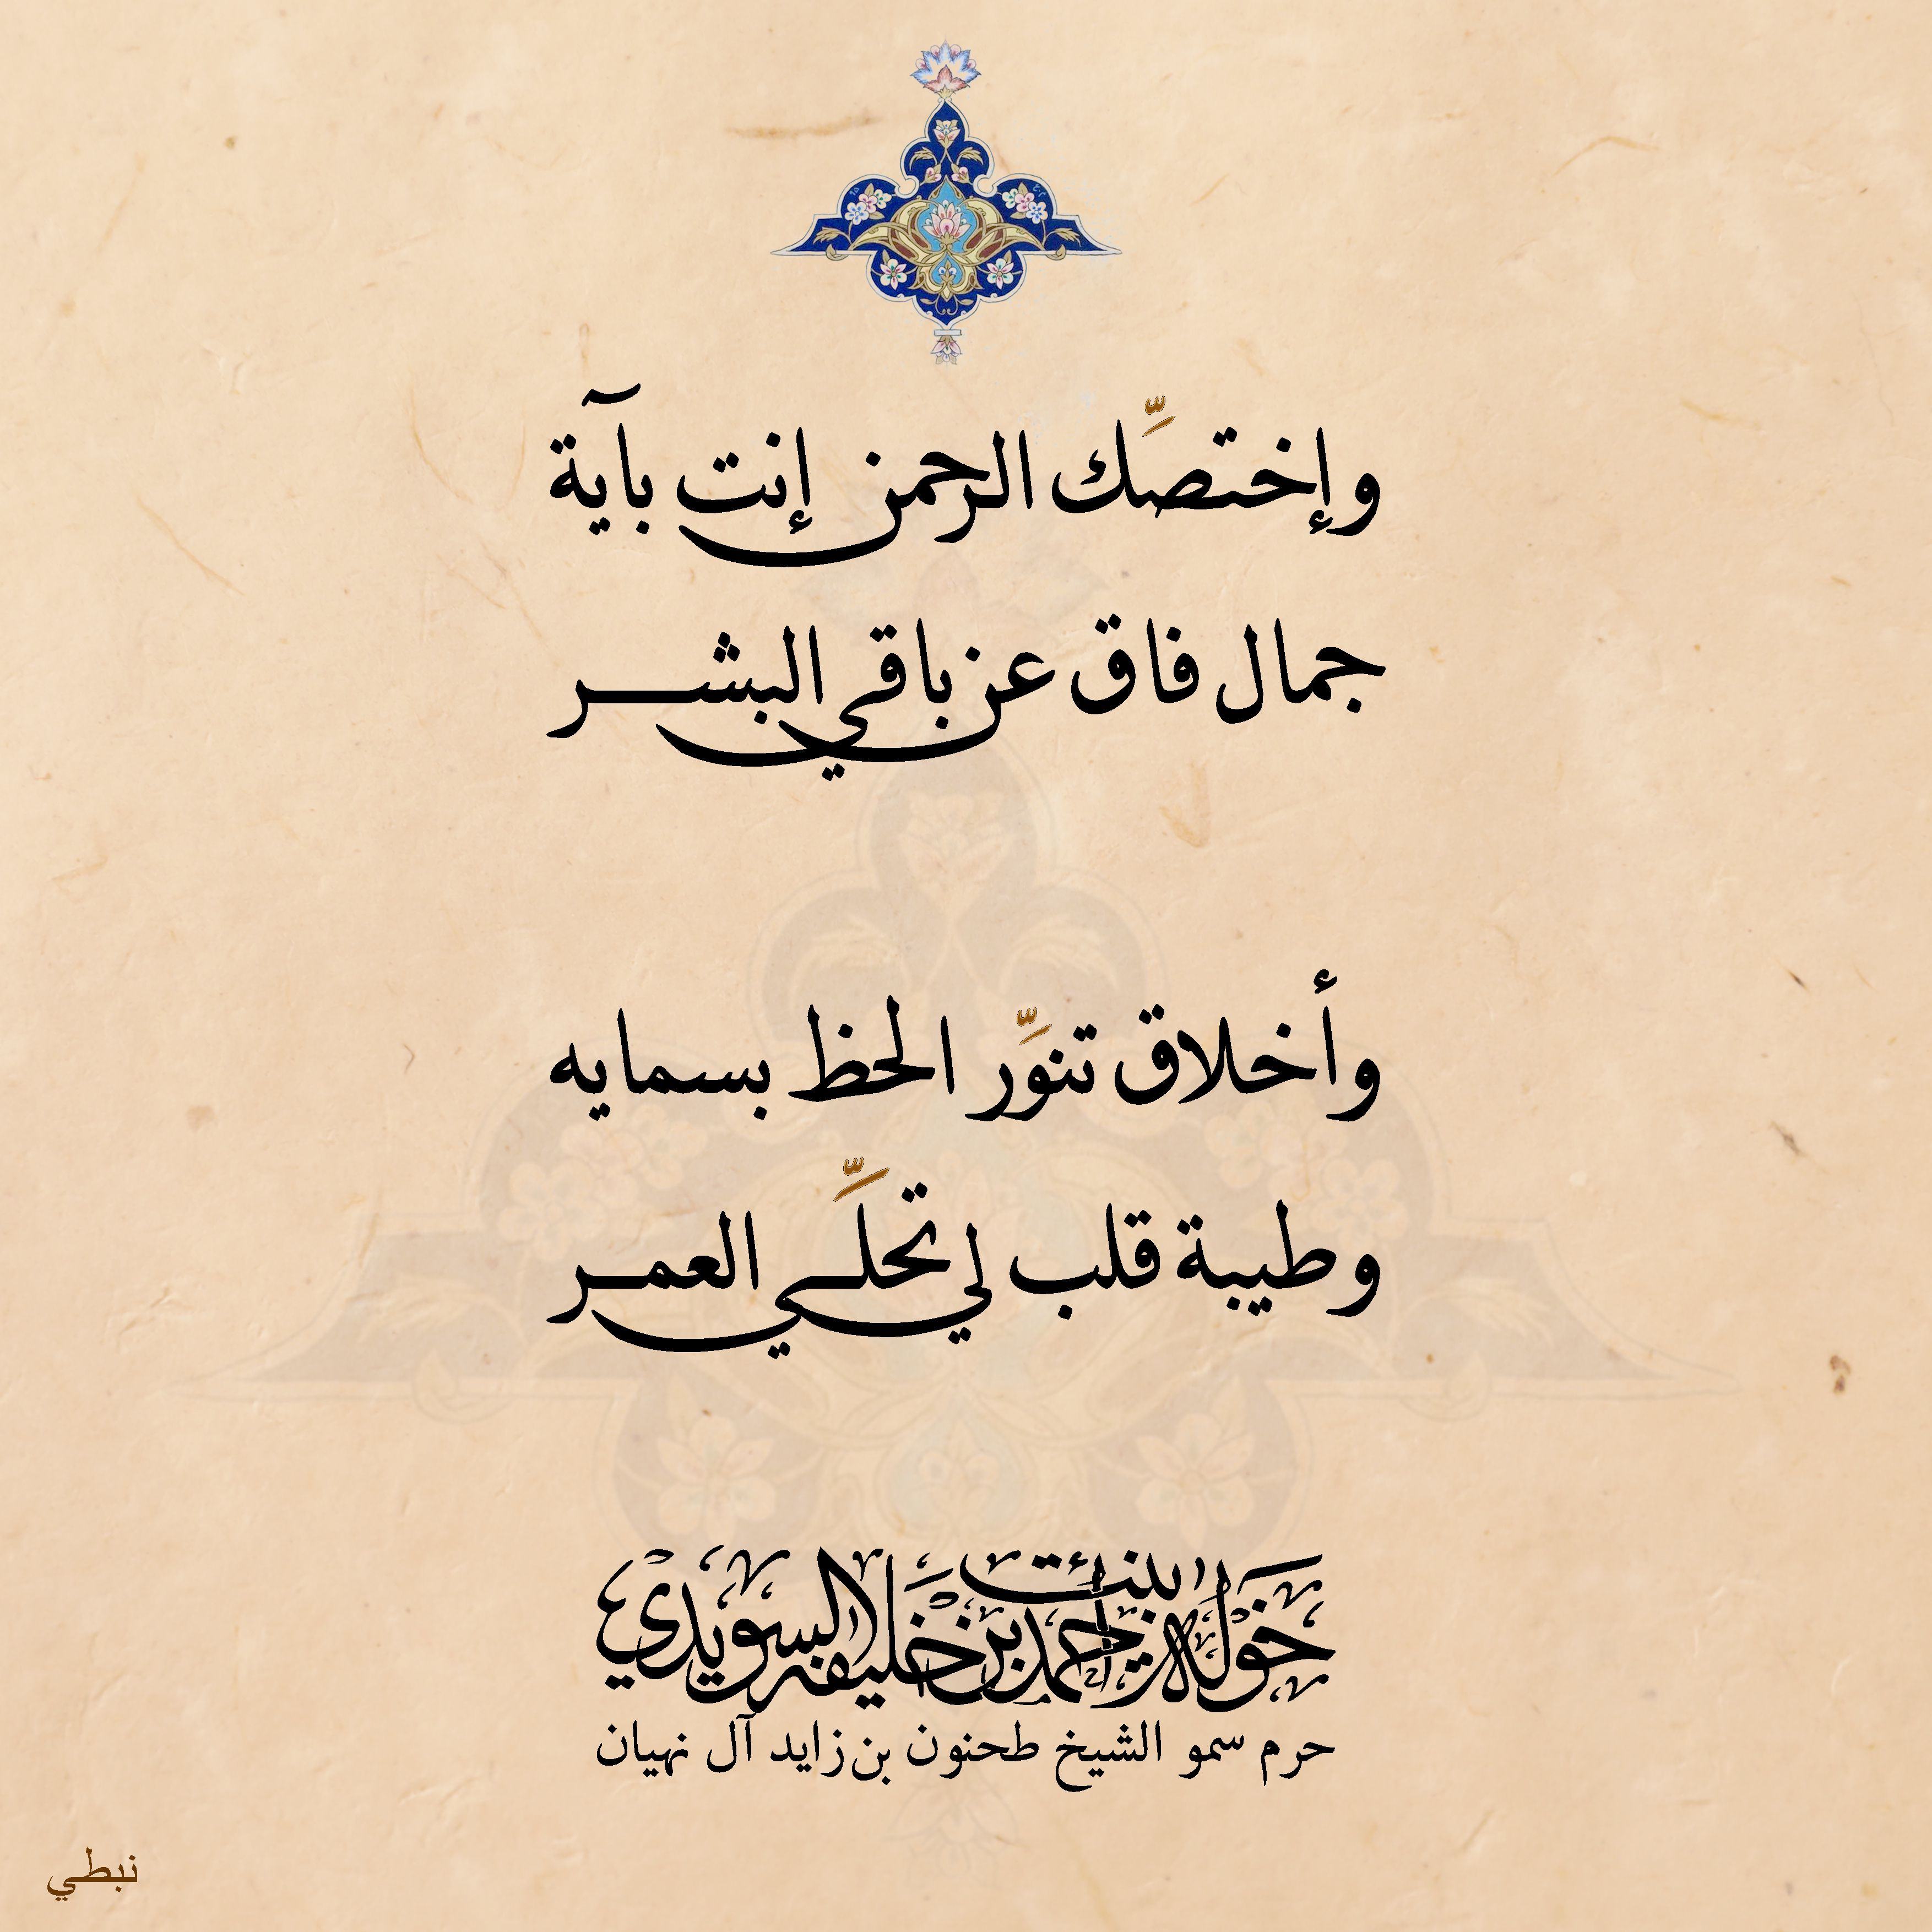 وإختصِّك الرحمن إنت بآية
جمال فاق عن باقي البشر
وأخلاق تنوِّر الحظ بسمايه
وطيبة قلب لي تحلِّي العمر
خوله بنت أحمد بن خليفه السويدي
حرم سمو الشيخ طحنون بن زايد آل نهيان
نبطي